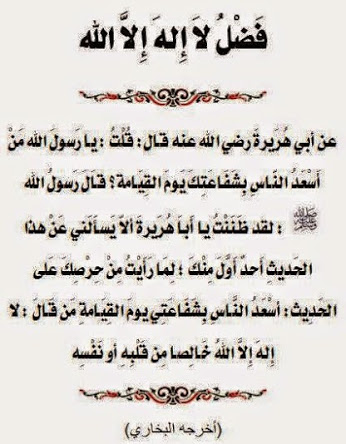 فَضْلُ لاَ إِلهَ إِلاَّ الله
عن أبي هُرَيرةَ رضي الله عنه قال: قُلْتُ : يا رَسولَ الله مَنْ
أسْعَدُ النَّاسِ بِشَفاعتِكَ يومَ القِيَامةِ؟ قالَ رَسُولُ الله
ﷺ : لقد ظَنَنْتُ يا أباَ هُرَيرة ألاَّ يَسألَني عَنْ هذا
الحَديثِ أحدٌ أوَّلَ مِنْكَ ؛ لِمَا رَأيْتُ مِنْ حرْصِكَ عَلى
الحَدِيث: أسْعَدُ النَّاسِ بِشَفَاعَتِي يومَ القِيَامَةِ مَن قَالَ : لا
إلهَ إلاَّ اللهُ خَالِصا مِن قَلْبِهِ أو نَفْسِهِ
(أخرجه البخاري)